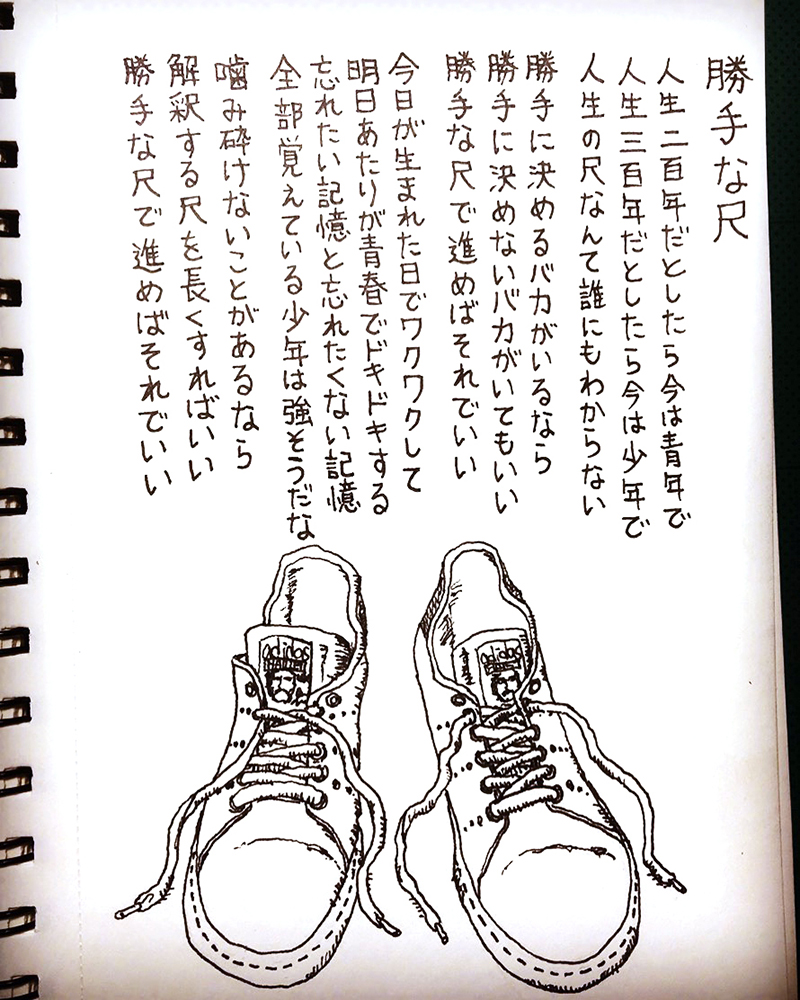 勝手な尺
人生二百年だとしたら今は青年で
人生三百年だとしたら今は少年で
人生の尺なんて誰にもわからない
勝手に決めるバカがいるなら
勝手に決めないバカがいてもいい
勝手な尺で進めばそれでいい
今日が生まれた日でワクワクして
明日あたりが青春でドキドキする
忘れたい記憶と忘れたくない記憶
全部覚えている少年は強そうだな
噛み砕けないことがあるなら
解釈する尺を長くすればいい
勝手な尺で進めばそれでいい
adidas
adidas